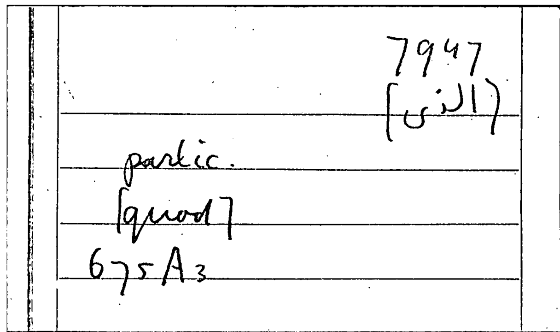 7947
[الذى]
partic.
[quod]
675A3